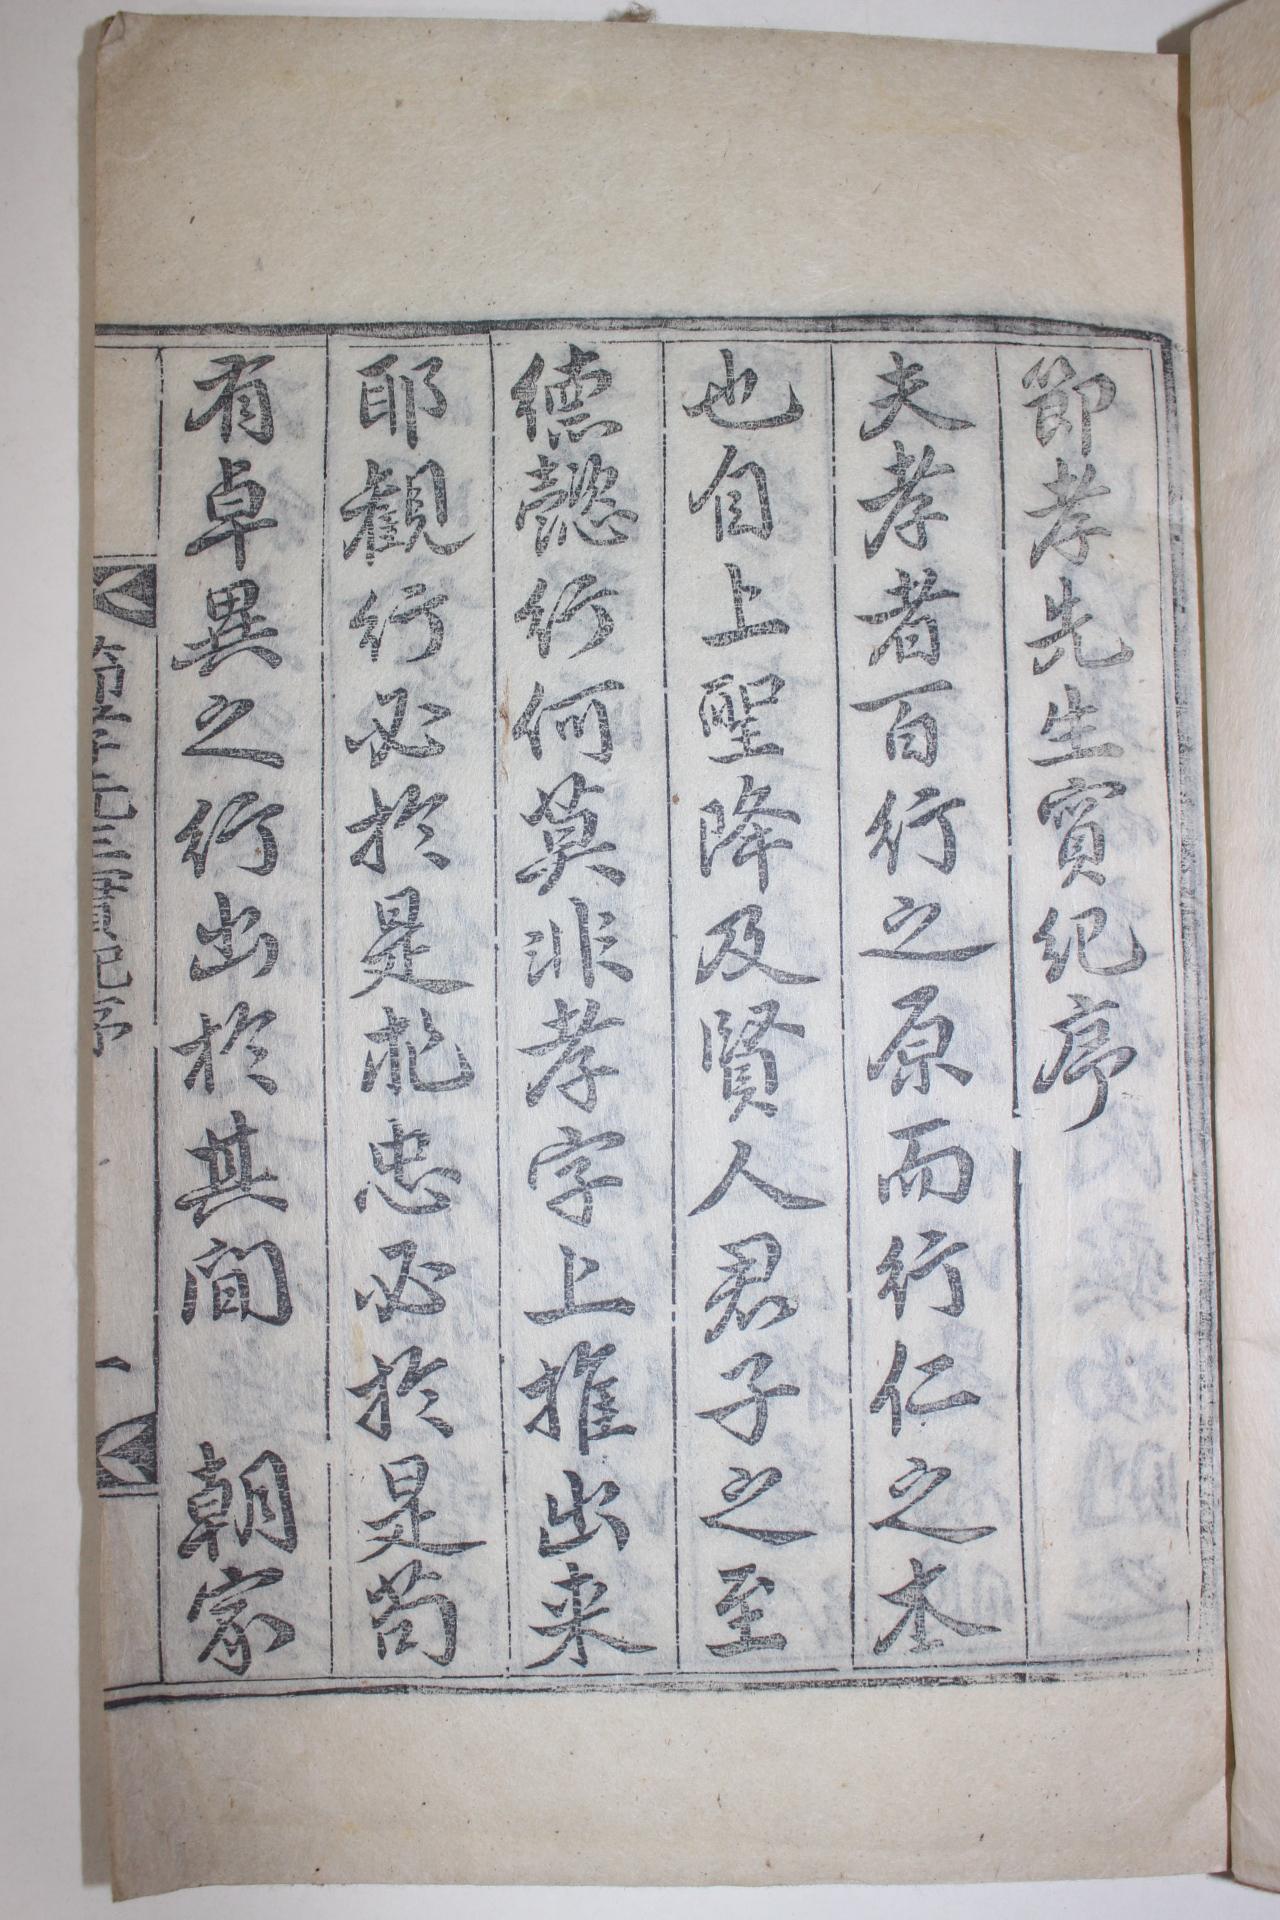 節孝先生實紀序
夫孝者百行之原而行仁之本
也自上聖降及賢人君子之至
德懿行何莫非孝字上推出来
耶観行必於是求忠必於是苟
有卓異之行出於其間　朝家
一